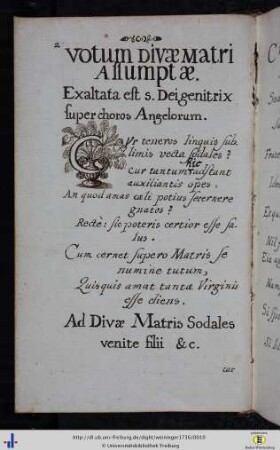 2
votum DIVÆ MATRI
ASSumptæ.
Exaltata est s. Dei genitrix
super choros Angelorum.
CVr teneros linquis sub
limis vecta sodales?
hîc
Cur tantum adstant
auxiliantis opes.
An quod amas cæli potius secernere
gnatos?
Rectè: sic poteris certior esse sa
lus.
Cum cernet supero Matris se
numine tutum,
Quisquis amat tanta Virginis
esse cliens.
Ad Divæ Matris Sodales
venite filii &c.
http://dl.ub.uni-freiburg.de/diglit/weininger1736/0010
© Universitätsbibliothek Freiburg